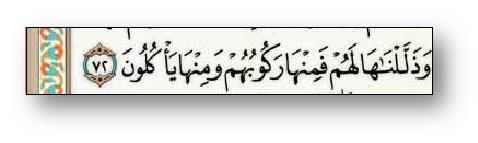 وَذَلَّلْنَٰهَا لَهُمْ فَمِنْهَا رَكُوبُهُمْ وَمِنْهَا يَأْكُلُونَ ٧٢